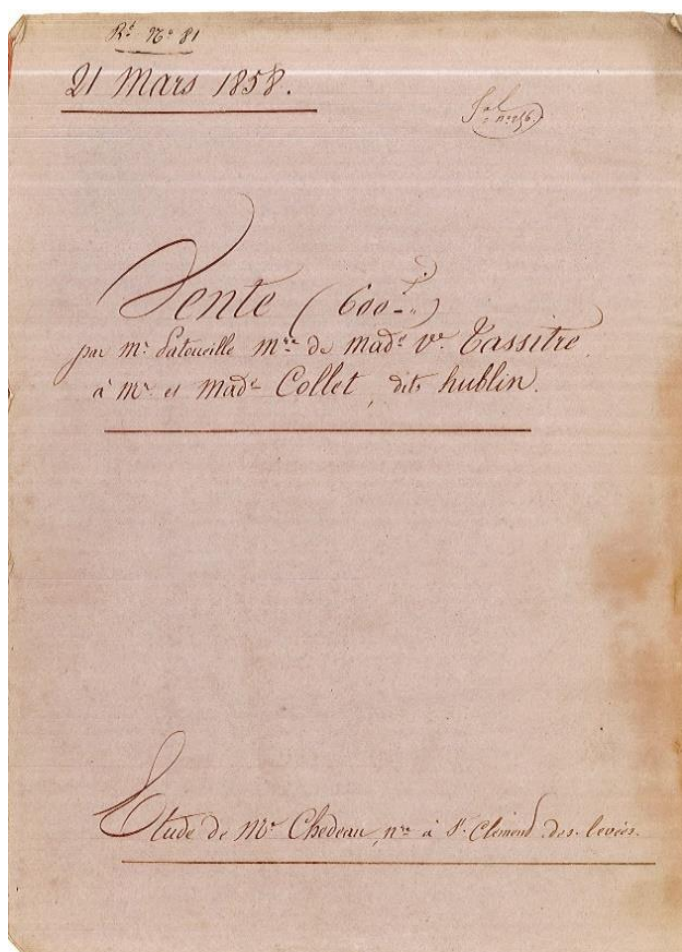 Rt. No. 81
21 Mars 1858.
Vente (600 f. „)
par Mr. Latoueille mre. de Made. Ve. Tassitre,
à Mr. et Made. Collet, dits hublin.
Etude de Me. Chedeau, nre. à St. Clément des levées.